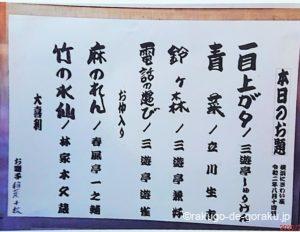 本日のお題
横浜にぎわい座
令和二年八月十四日
一目上がり/三遊亭
青菜/立川生
鈴ヶ森/三遊亭兼好
電話の遊び/三遊亭遊雀
お仲入り
麻のれん/春風亭一之輔
竹の水仙/林家木久蔵
大喜利
お囃子
©rakugo-de-goraku.jp